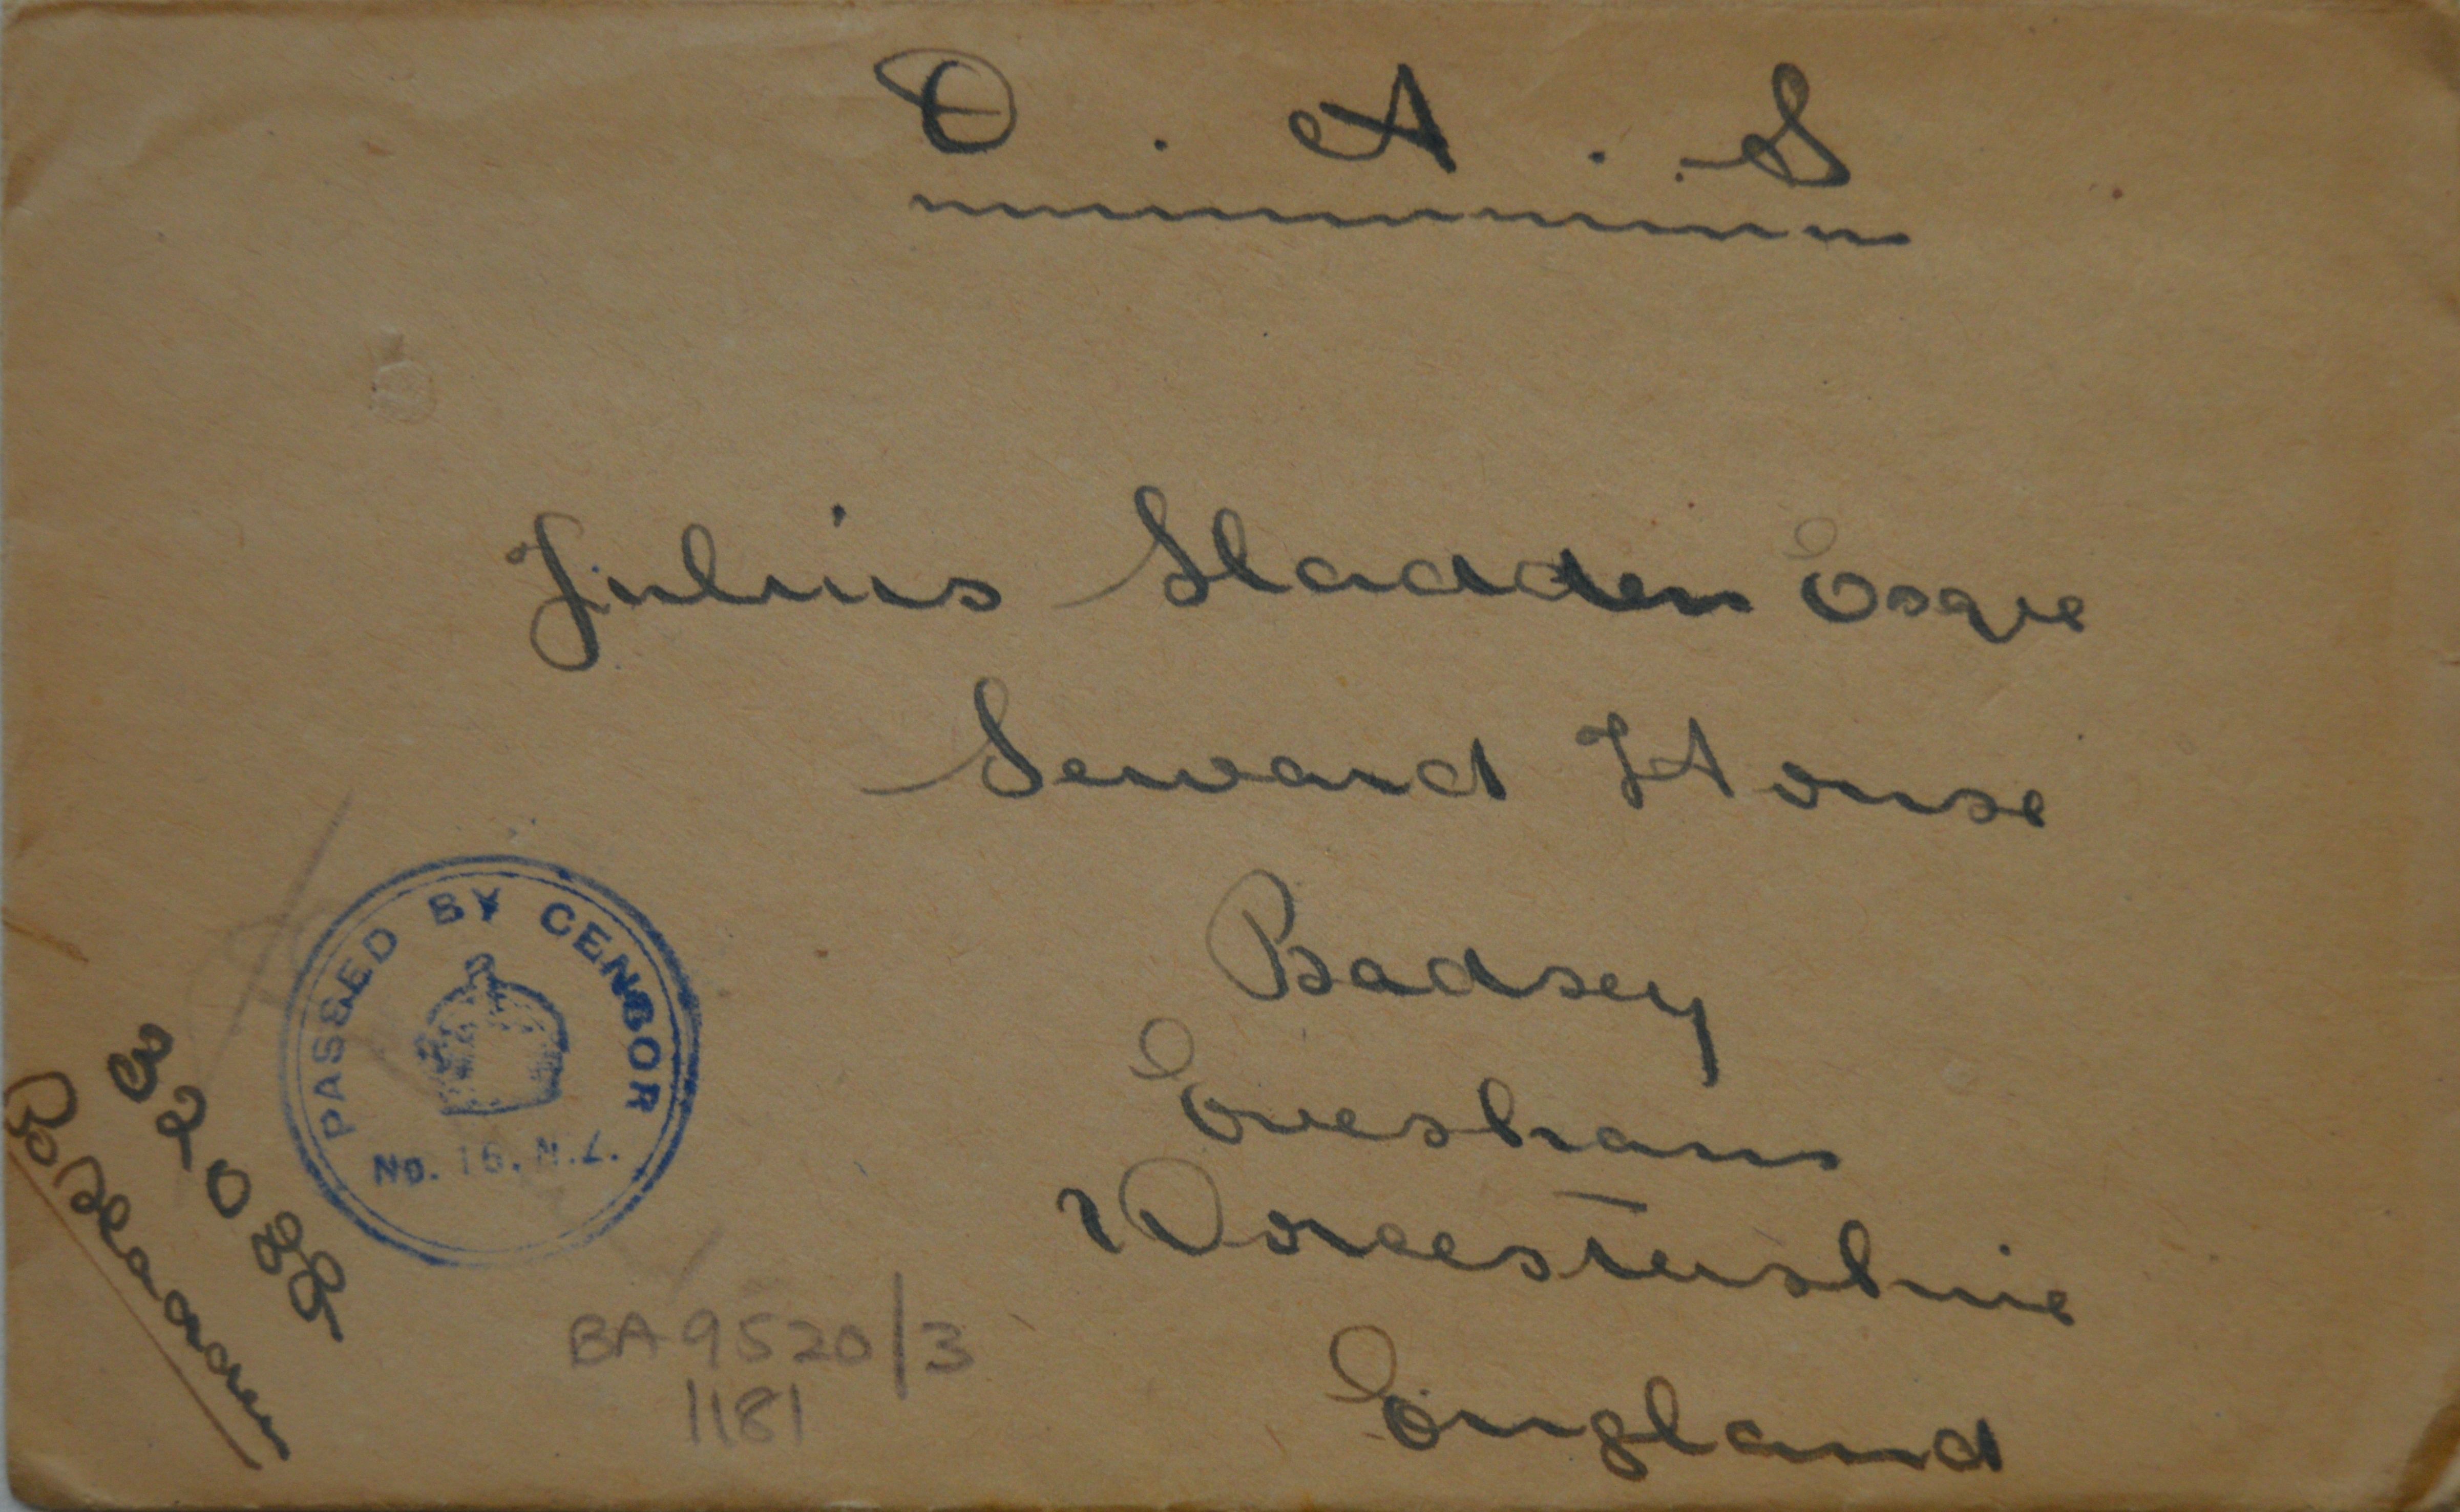 O . A . S
Julius Sladden Esqre
Seward House
Badsey
Evesham
Worcestershire
England
PASSED BY CENSOR
No. 16. N.Z.
32088
B Sladden
BA 9520/3
1181